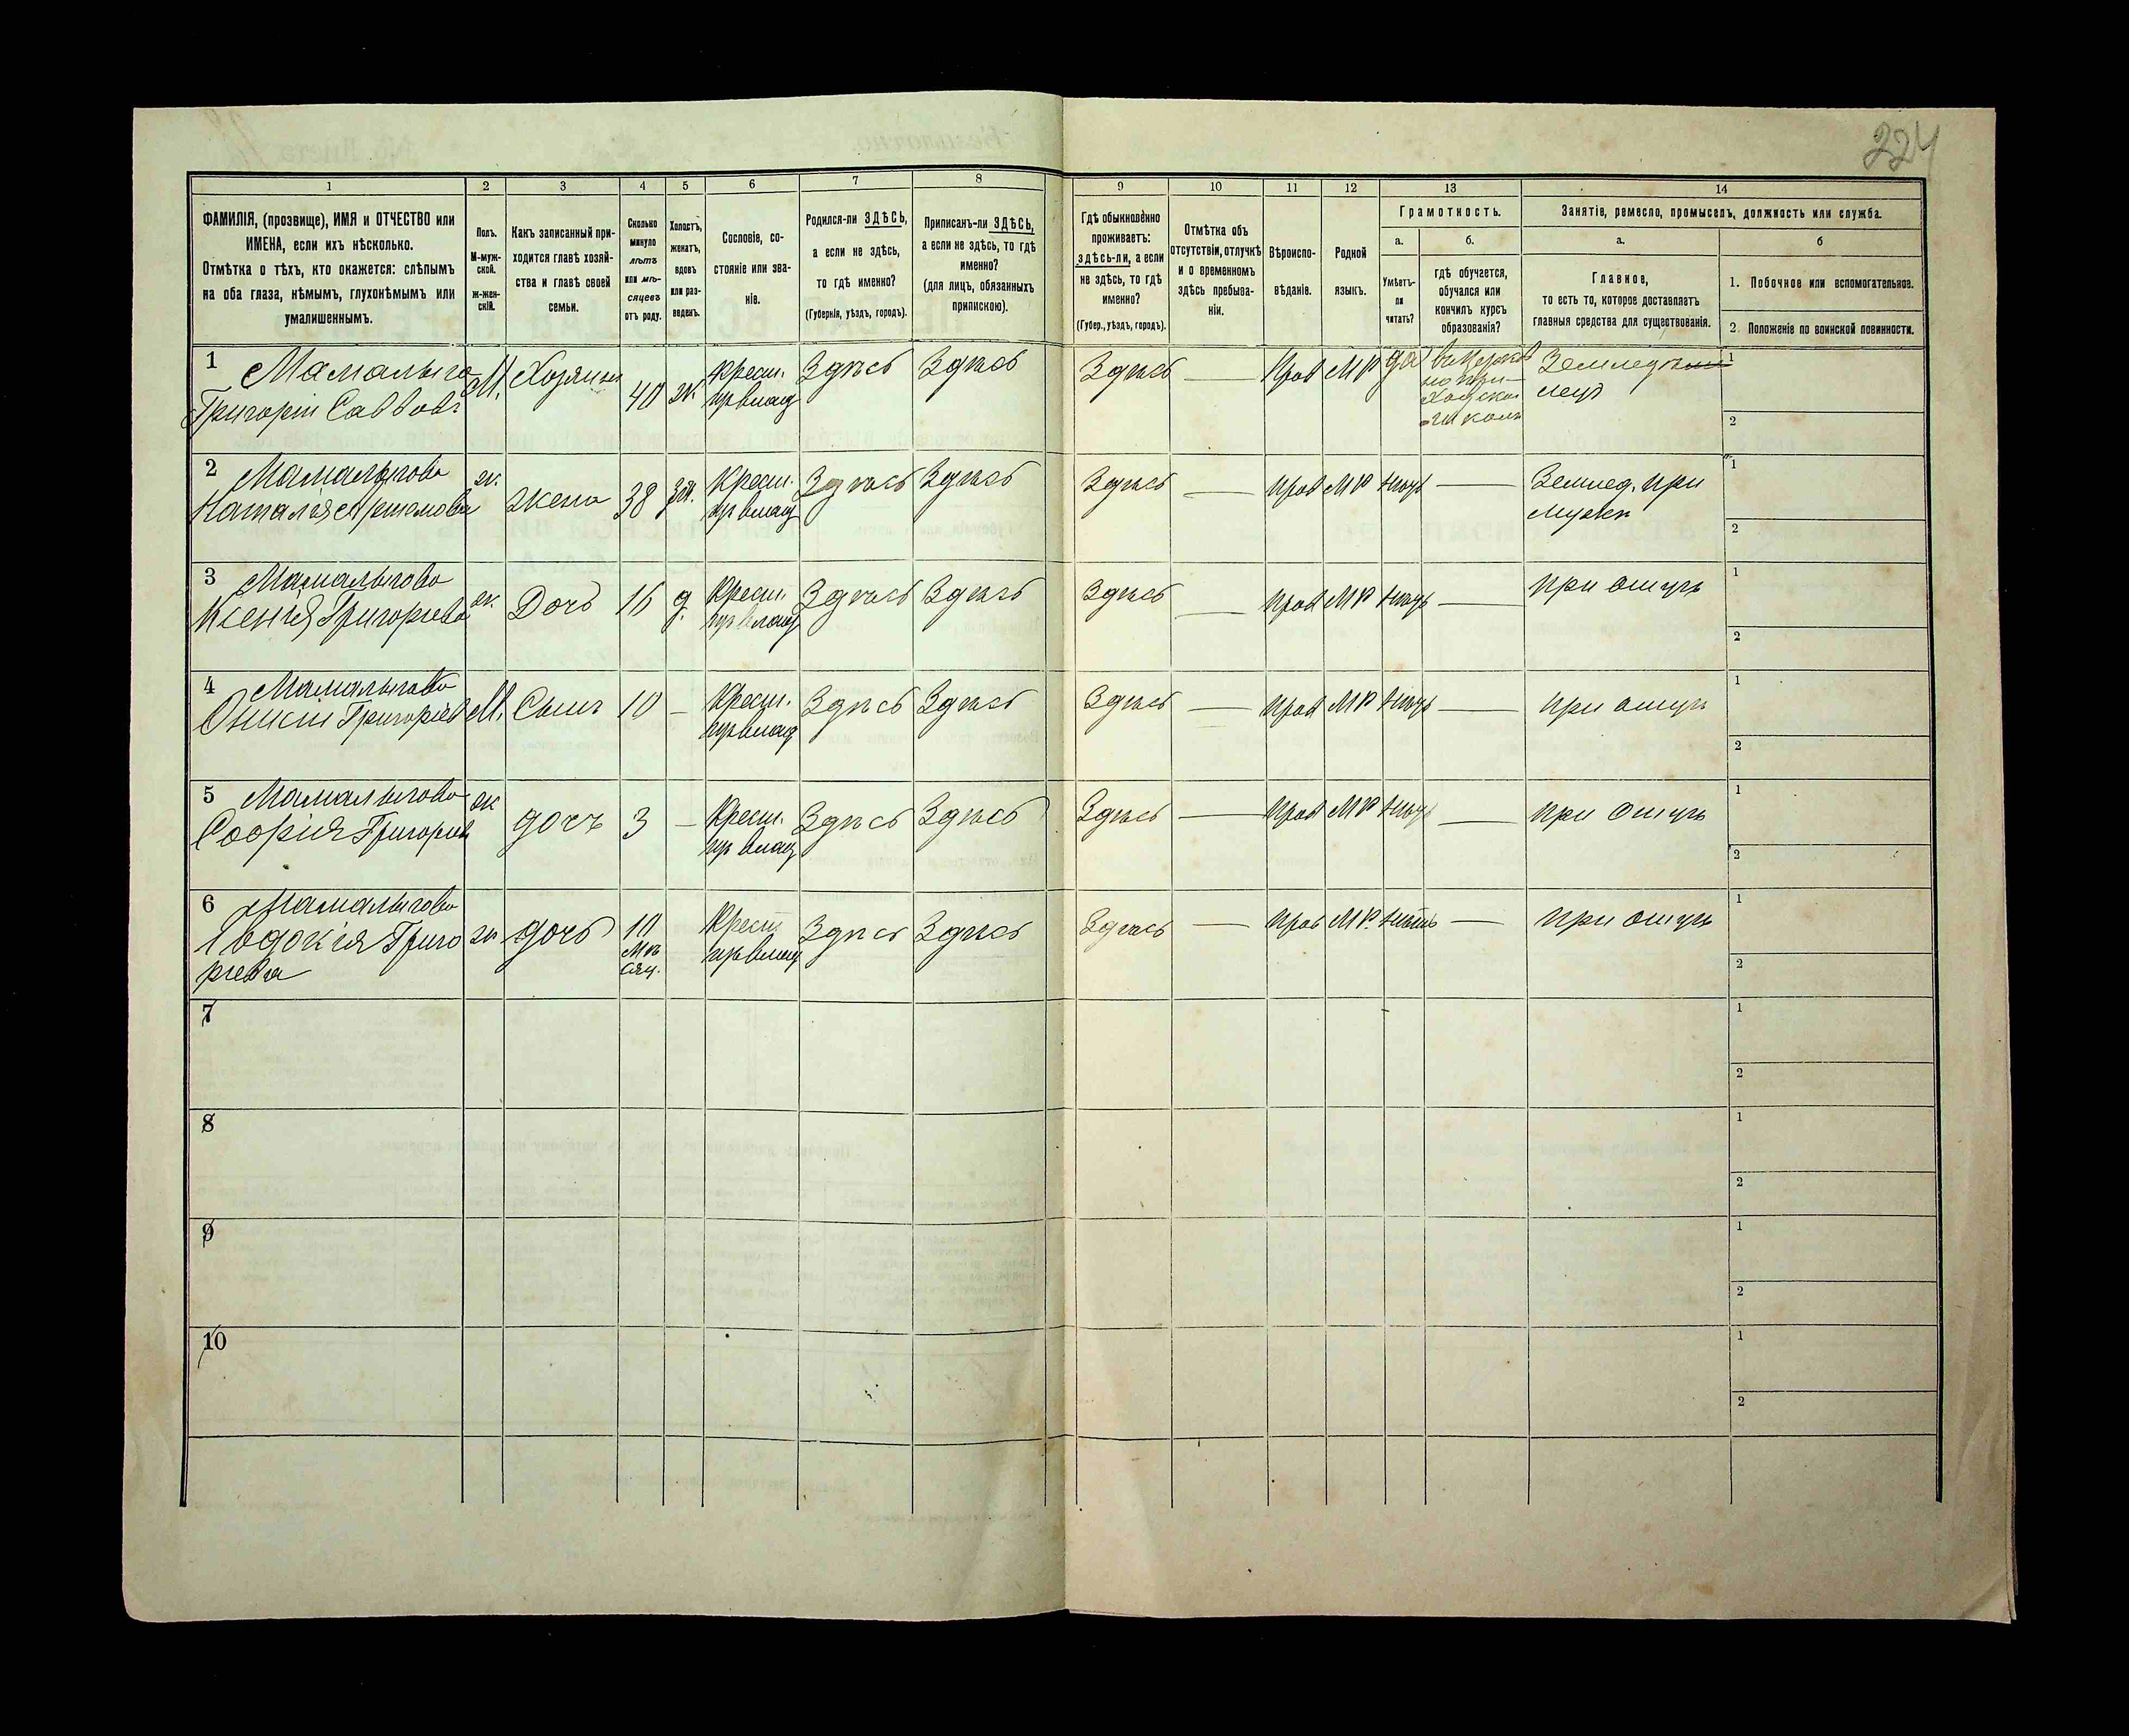 224
1
2
3
4
5
6
7
8
9
10
11
12
13
14
ФАМИЛІЯ, (прозвище), ИМЯ и ОТЧЕСТВО или
ИМЕНА, если ихъ нѣсколько.
Отмѣтка о тѣхъ, кто окажется: слѣпымъ
на оба глаза, нѣмымъ, глухонѣмымъ или
умалишеннымъ.
Полъ.
М-муж-
ской.
Ж-жен-
скій.
Какъ записанный при-
ходится главѣ хозяй-
ства и главѣ своей
семьи.
Сколько
минуло
лѣтъ
или мѣ-
сяцевъ
отъ роду.
Холостъ,
женатъ,
вдовъ
или раз-
веденъ.
Сословіе, со-
стояніе или зва-
ніе.
Родился-ли ЗДѢСЬ,
а если не здѣсь,
то гдѣ именно?
(Губернія, уѣздъ, городъ).
Приписанъ-ли ЗДѢСЬ,
а если не здѣсь, то гдѣ
именно?
(для лицъ, обязанныхъ
припискою).
Гдѣ обыкновенно
проживаетъ:
здѣсь-ли, а если
не здѣсь, то гдѣ
именно?
(Губер., уѣздъ, городъ).
Отмѣтка объ
отсутствіи, отлучкѣ
и о временномъ
здѣсь пребыва-
ніи.
Вѣроиспо-
вѣданіе.
Родной
языкъ.
Грамотность.
а.
Умѣетъ-
ли
читать?
б.
гдѣ обучается,
обучался или
кончилъ курсъ
образованія?
Занятіе, ремесло, промыселъ, должность или служба.
а.
Главное,
то есть то, которое доставляетъ
главныя средства для существованія.
б
1. Побочное или вспомогательное.
2. Положеніе по воинской повинности.
1 Мамалыга
Григорій Саввовъ
М. Хозяинъ 40 ж. Крест. Здѣсь Здѣсь Здѣсь — Прав МР да
Земледѣ
лецъ
1
2
2 Мамалыгова
Наталія Артемова
ж. жена 38 Крест. Здѣсь Здѣсь Здѣсь — Прав МР нѣтъ — Землед. при
мужѣ
1
2
3 Мамалыгова
Ксенія Григорьева
ж. Дочь 16 д. Крест. Здѣсь Здѣсь Здѣсь — Прав МР нѣтъ — при отцѣ
1
2
4 Мамалыгова
Григоріев
М. Сынъ 10 — Крест. Здѣсь Здѣсь Здѣсь — Прав МР нѣтъ — при отцѣ
1
2
5 Мамалыгова
Софія Григорьев
ж дочь 3 — Крест. Здѣсь Здѣсь Здѣсь — Прав МР нѣтъ — при отцѣ
1
2
6 Мамалыгова
Евдокія Григо
рьева
ж дочь 10
Мѣ
сяц.
Крест. Здѣсь Здѣсь Здѣсь — Прав МР. нѣтъ — при отцѣ
1
2
7
1
2
8
1
2
9
1
2
10
1
2